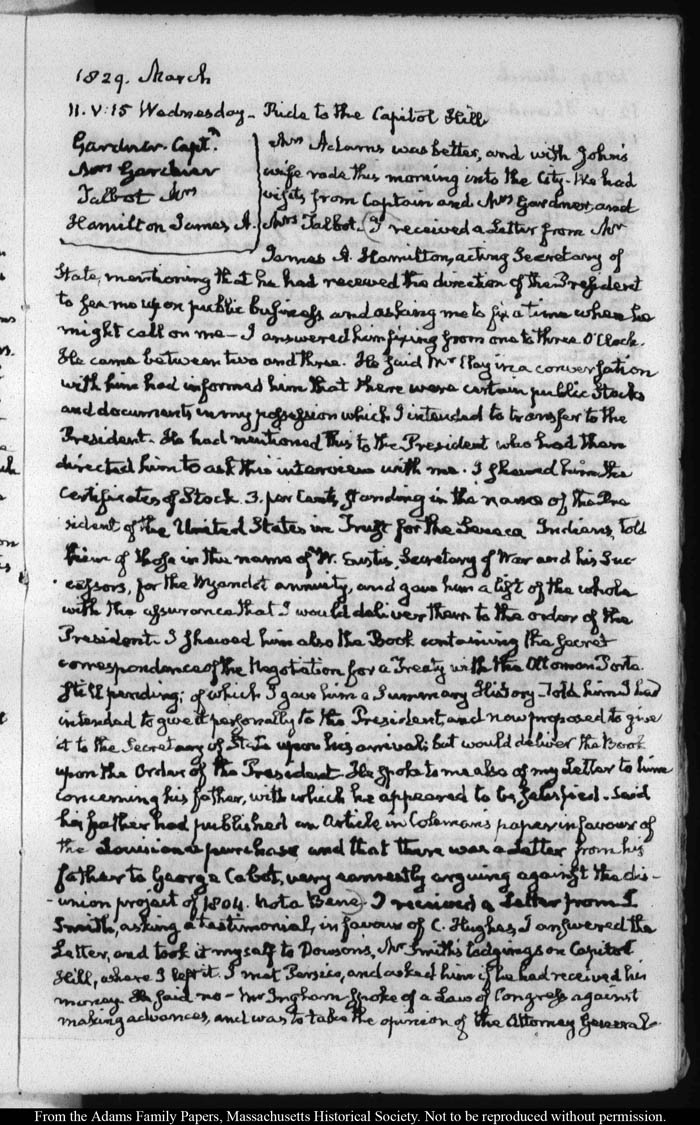 1829. March
11. V:15 Wednesday - Ride to the Capitol Hill
Gardner. Captn.
Mrs Gardner
Talbot Mrs
Hamilton James A.
Mrs Adams was better, and with John's
wife rode this morning into the City - We had
visits from Captain and Mrs Gardner, and
Mrs Talbot. (I received a Letter from Mr
James A. Hamilton, acting Secretary of
State, mentioning that he had received the direction of the President
to see me upon public business and asking me to fix a time when he
might call on me - I answered him fixing from one to three O'Clock.
He came between two and three. He said Mr Clay in a conversation
with him had informed him that there were certain public Stocks
and documents in my possession which I intended to transfer to the
President. He had mentioned this to the President who had then
directed him to ask this interview with me. I shewed him the
Certificates of Stock 3. per Cents, standing in the name of the Pre
sident of the United States in Trust for the Seneca Indians, told
him of those in the name of W. Eustis, Secretary of War and his Suc-
cessors, for the Wyandot annuity, and gave him a list of the whole
with the assurance that I would deliver them to the order of the
President. I shewed him also the Book containing the secret
correspondence of the Negotiation for a Treaty with the Ottoman Porte.
still pending; of which I gave him a Summary History - Told him I had
intended to give it personally to the President, and now proposed to give
it to the Secretary of State upon his arrival; but would deliver the Book
upon the Order of the President. He spoke to me also of my Letter to him
concerning his father, with which he appeared to be satisfied. Said
his father had published an Article in Coleman's paper in favour of
the Louisiana purchase and that there was a Letter from his
father to George Cabot, very earnestly arguing against the dis-
-union project of 1804. Nota Bene) I received a Letter from S.
Smith, asking a testimonial, in favour of C. Hughes, I answered the
Letter, and took it myself to Dowsons, Mr Smith's lodgings on Capitol
Hill, where I left it. I met Persico, and asked him if he had received his
money. He said no - Mr Ingham spoke of a Law of Congress against
making advances, and was to take the opinion of the Attorney General.
From the Adams Family Papers, Massachusetts Historical Society. Not to be reproduced without permission.